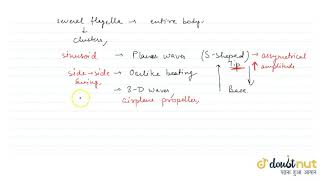 several flagella → entire body
↓
clusters,
sinusoid → Planar waves (S-shaped) → asymmetrical
tip amplitude
side → side → Oarlike beating
swing
→ 3-D waves, Base
airplane propeller,
doubtnut
पढ़ना हुआ आसान